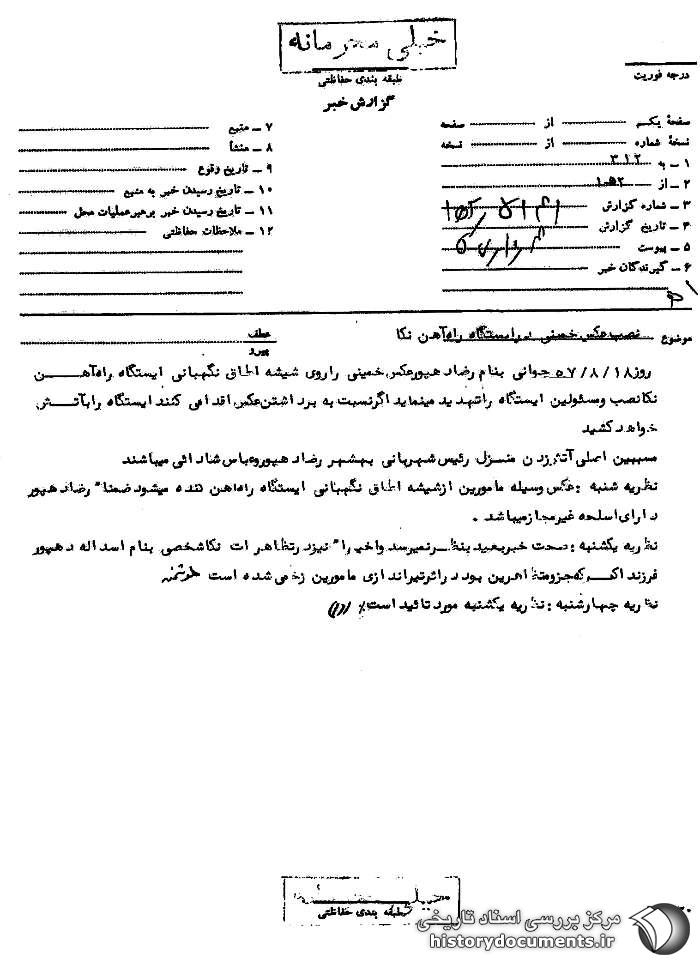 خیلی محرمانه
طبقه بندی حفاظتی
گزارش خبر
درجه فوریت
صفحهٔ یکم از صفحه
نسخهٔ شماره از نسخه
۱ ـ به ۳۱۲
۲ ـ از ۱۰۵۲
۳ ـ شماره گزارش
۴ ـ تاریخ گزارش
۵ ـ پیوست
۶ ـ گیرندگان خبر
۷ ـ منبع
۸ ـ منشأ
۹ ـ تاریخ وقوع
۱۰ ـ تاریخ رسیدن خبر به منبع
۱۱ ـ تاریخ رسیدن خبر برهبر عملیات محل
۱۲ ـ ملاحظات حفاظتی
موضوع نصب عکس خمینی در ایستگاه راه آهن نکا
عطف
پیرو
روز ۵۷/۸/۱۸ جوانی بنام رضا دهپور عکس خمینی را روی شیشه اطاق نگهبانی ایستگاه راه آهن
نکا نصب و مسئولین ایستگاه را تهدید مینماید اگر نسبت به برداشتن عکس اقدامی کنند ایستگاه را بآتش
خواهد کشید
مسببین اصلی آتش زدن منزل رئیس شهربانی بهشهر رضا دهپور و عباس شاد ائی میباشند
نظریه شنبه : عکس وسیله مامورین از شیشه اطاق نگهبانی ایستگاه راه آهن کنده میشود ضمنا" رضا دهپور
دارای اسلحه غیر مجاز میباشد .
نظریه یکشنبه : صحت خبر بعید بنظر نمیرسد و اخیرا" نیز در تظاهرات نکا شخصی بنام اسداله دهپور
فرزند اکبر که جزو متظاهرین بود در اثر تیراندازی مامورین زخمی شده است
نظریه چهارشنبه : نظریه یکشنبه مورد تائید است
خیلی محرمانه
طبقه بندی حفاظتی
مرکز بررسی اسناد تاریخی
historydocuments.ir